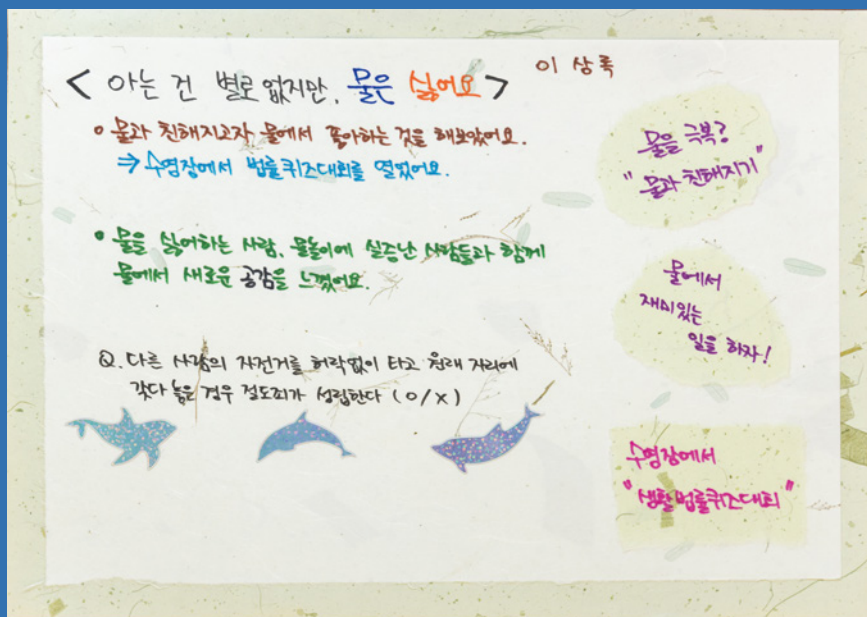 < 아는 건 별로 없지만, 물은 싫어요 >
이 상록
• 물과 친해지고자 물에서 좋아하는 것을 해보았어요.
⇒ 수영장에서 법률퀴즈대회를 열었어요.
• 물을 싫어하는 사람, 물놀이에 싫증난 사람들과 함께
물에서 새로운 공감을 느꼈어요.
Q. 다른 사람의 자전거를 허락없이 타고 원래 자리에
갖다 놓은 경우 절도죄가 성립한다 (O/X)
물을 극복?
"물과 친해지기"
물에서
재미있는
일을 하자!
수영장에서
"생활법률퀴즈대회"